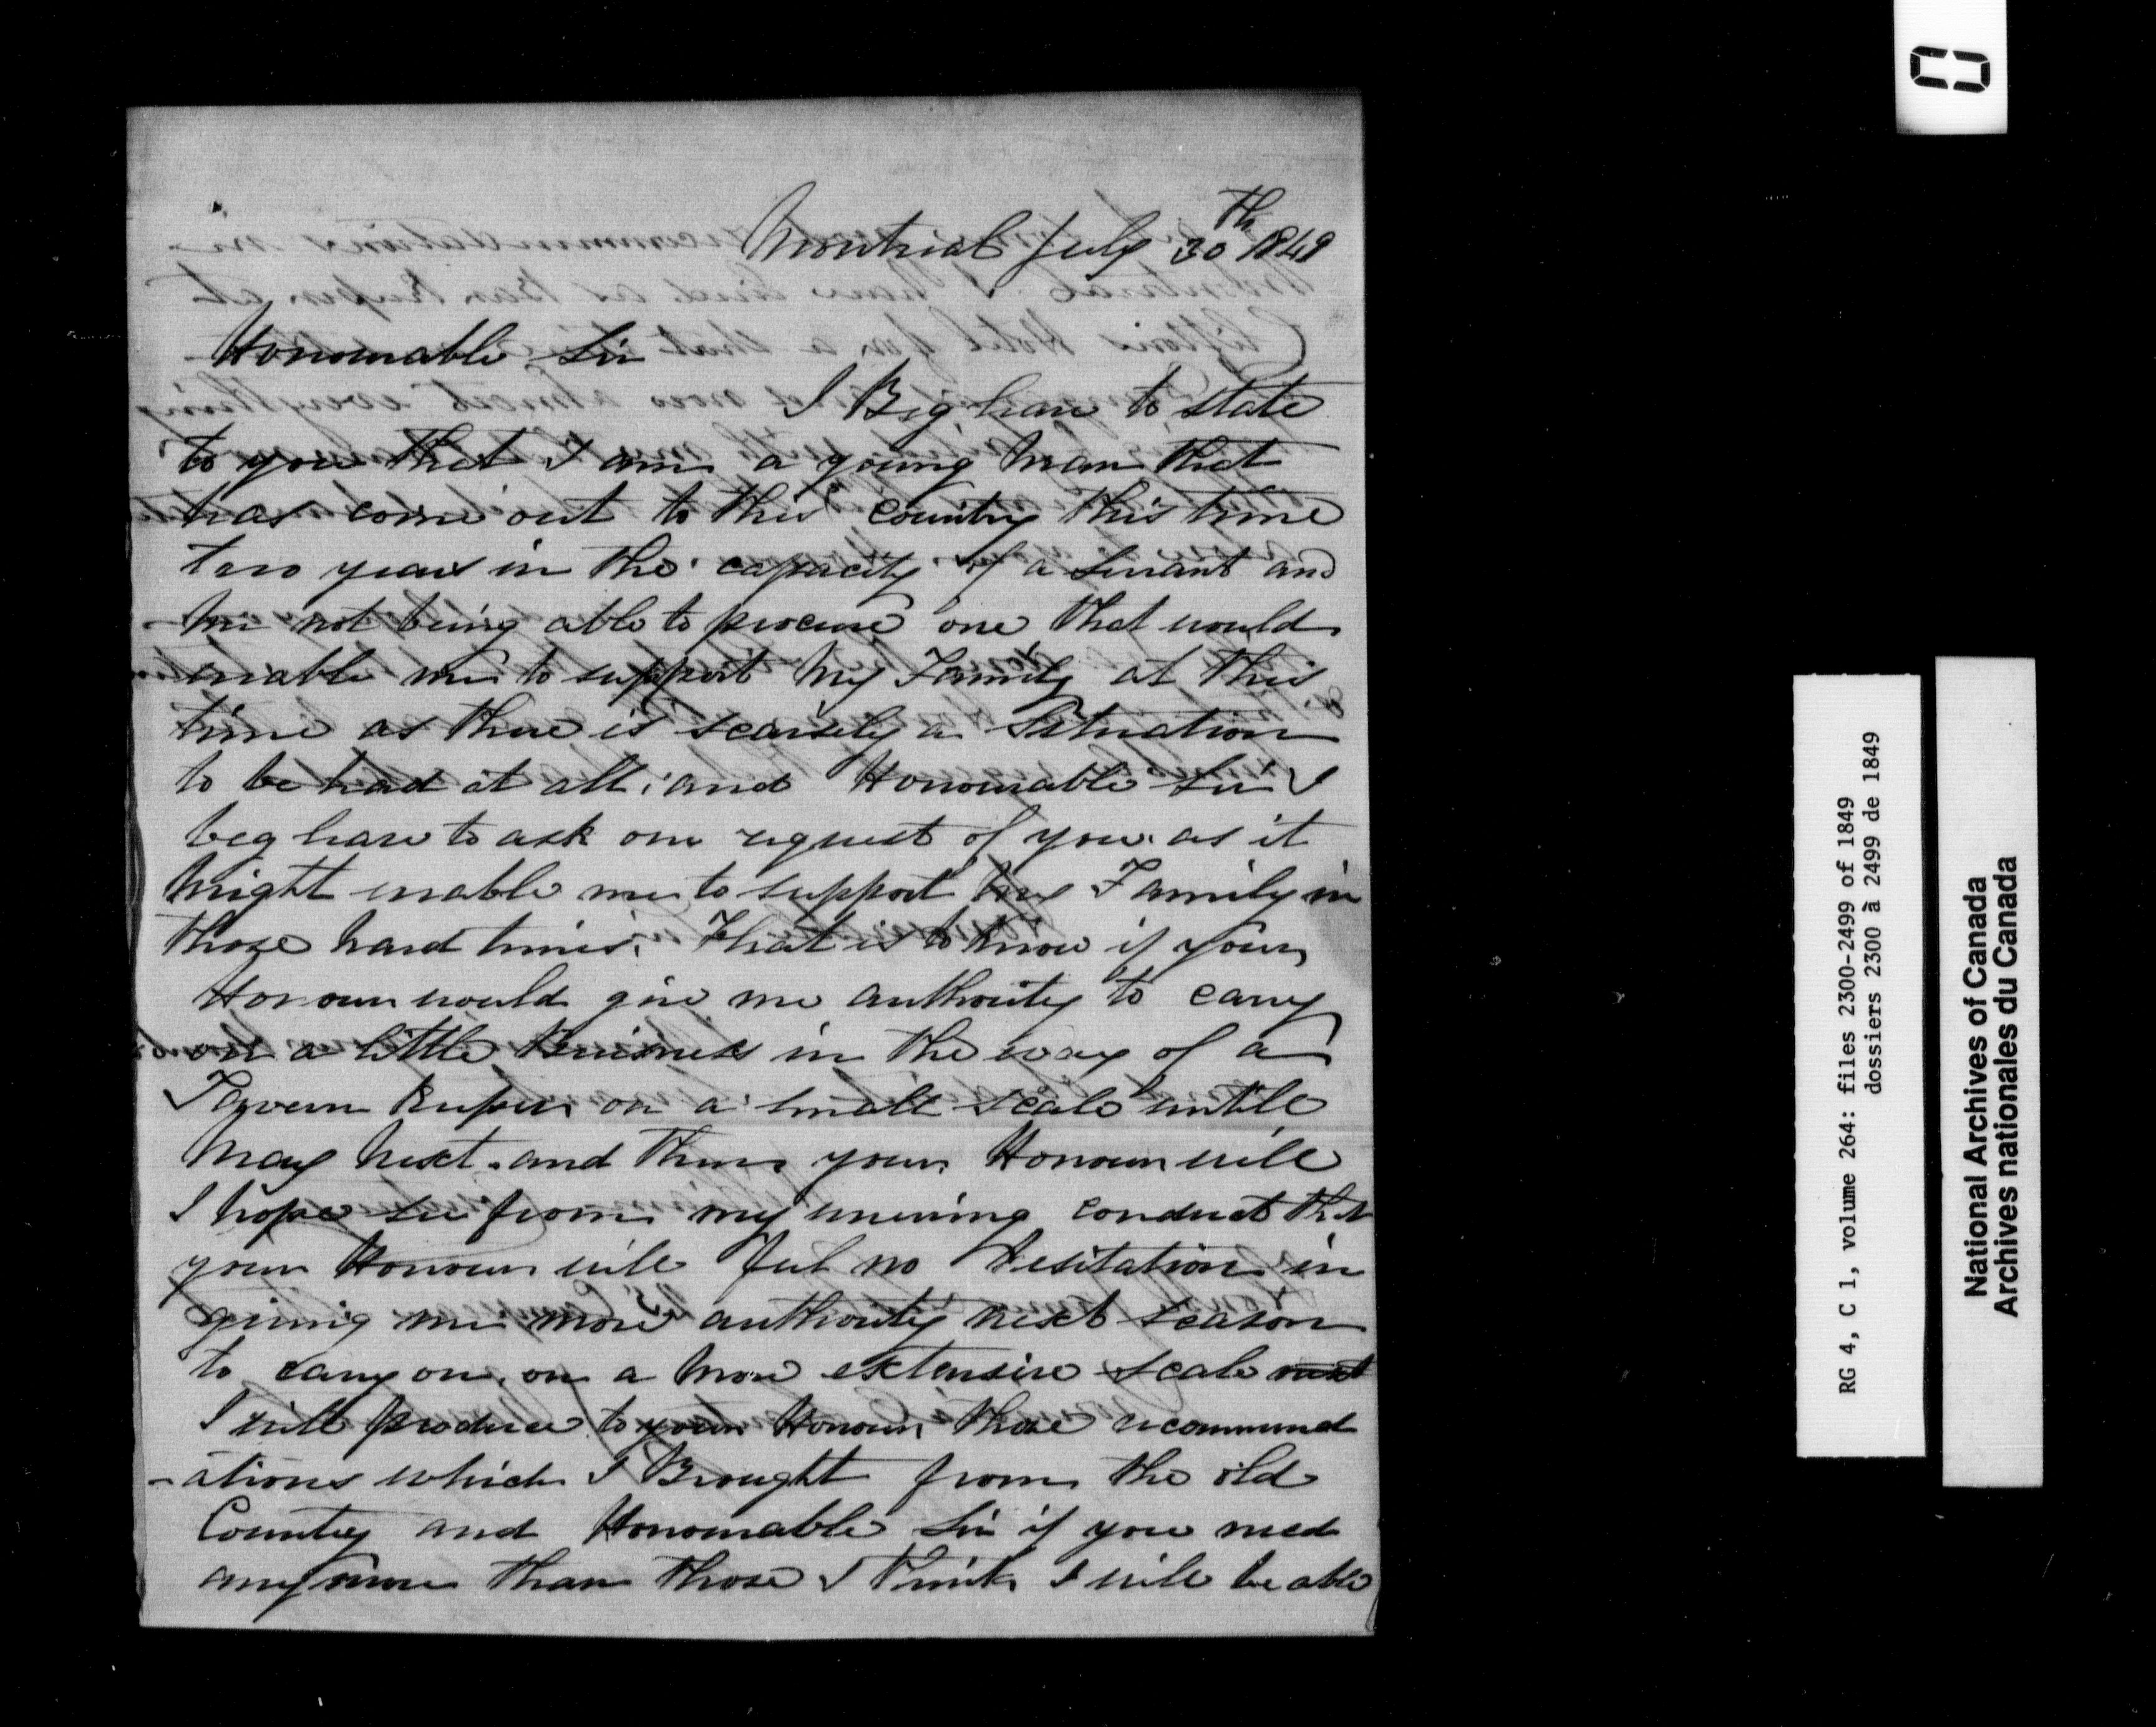 Montrial July 30th 1849
Honourable Sir
I Beg leave to state
to you that I am a young Man that
has come out to this country this time
two years in the capacity of a Servant and
me not being able to procure one that would
enable me to support My Family at this
time as there is scarsely a Situation
to be had at all; and Honourable Sir I
beg leave to ask one request of you as it
Might enable me to support my Family in
those hard times. That is to know if your
Honour would give me authority to carry
on a little Buisness in the way of a
Tavern Keeper on a small scale untill
May Next. and then your Honour will
I hope see from my unerring conduct that
your Honour will feel no Hesitation in
giving me more authority next season
to carry on, on a More extensive scale next
I will produce to your Honour those recommend
-ations which I Brought from the old
Country and Honourable Sir if you need
any more than those I think I will be able
RG 4, C 1, volume 264: files 2300-2499 of 1849
dossiers 2300 à 2499 de 1849
National Archives of Canada
Archives nationales du Canada